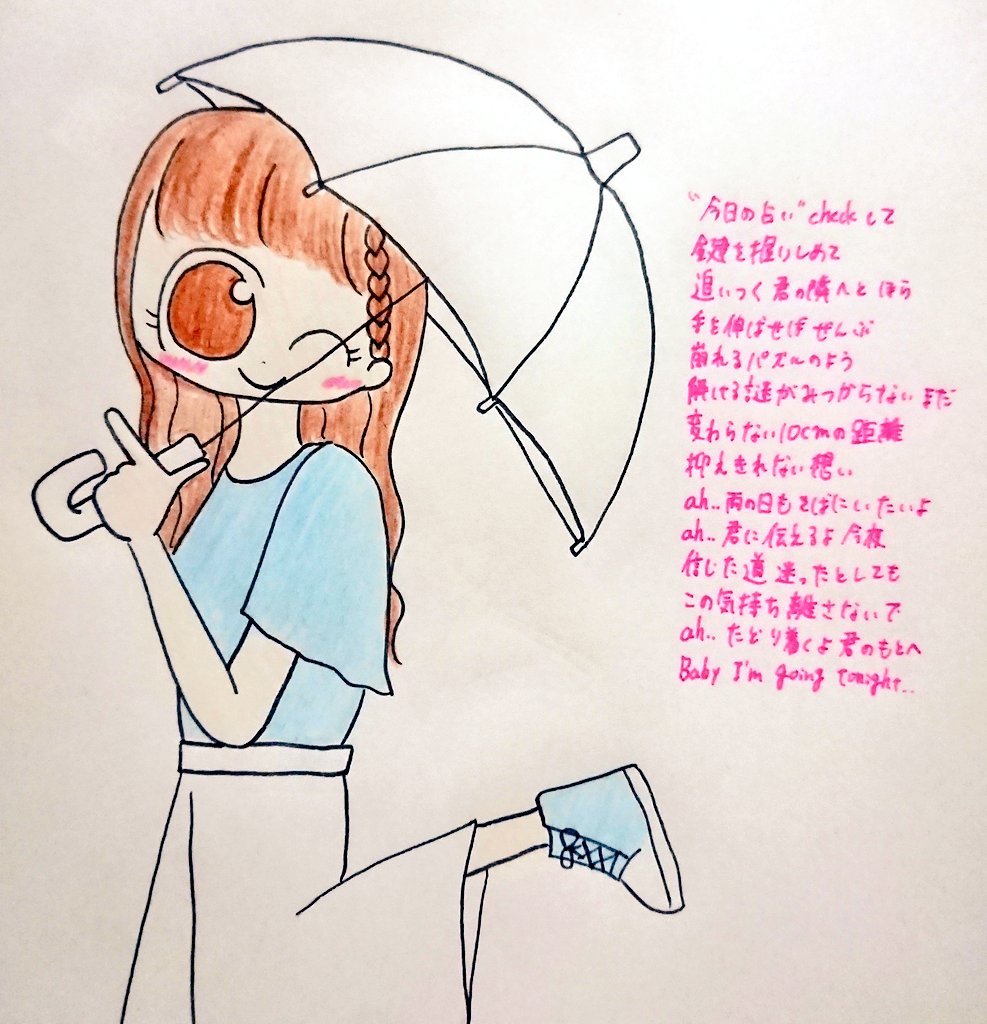 "今日の占い"checkして
鍵を握りしめて
追いつく君の隣へと ほら
手を伸ばせば ぜんぶ
崩れるパズルのよう
解ける謎がみつからないまだ
変わらない10cmの距離
抑えきれない想い
ah..雨の日もそばにいたいよ
ah..君に伝えるよ今夜
信じた道迷ったとしても
この気持ち離さないで
ah..たどり着くよ君のもとへ
Baby I'm going tonight..